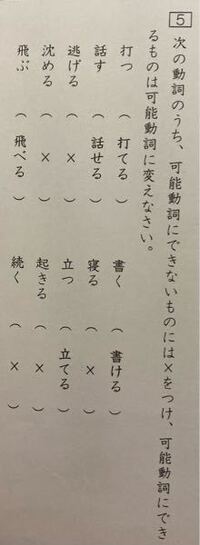 5 次の動詞のうち、可能動詞にできないものには×をつけ、可能動詞にでき
るものは可能動詞に変えなさい。
打つ（ 打てる ） 書く（ 書ける ）
話す（ 話せる ） 寝る（ × ）
逃げる（ × ） 立つ（ 立てる ）
沈める（ × ） 起きる（ × ）
飛ぶ（ 飛べる ） 続く（ × ）